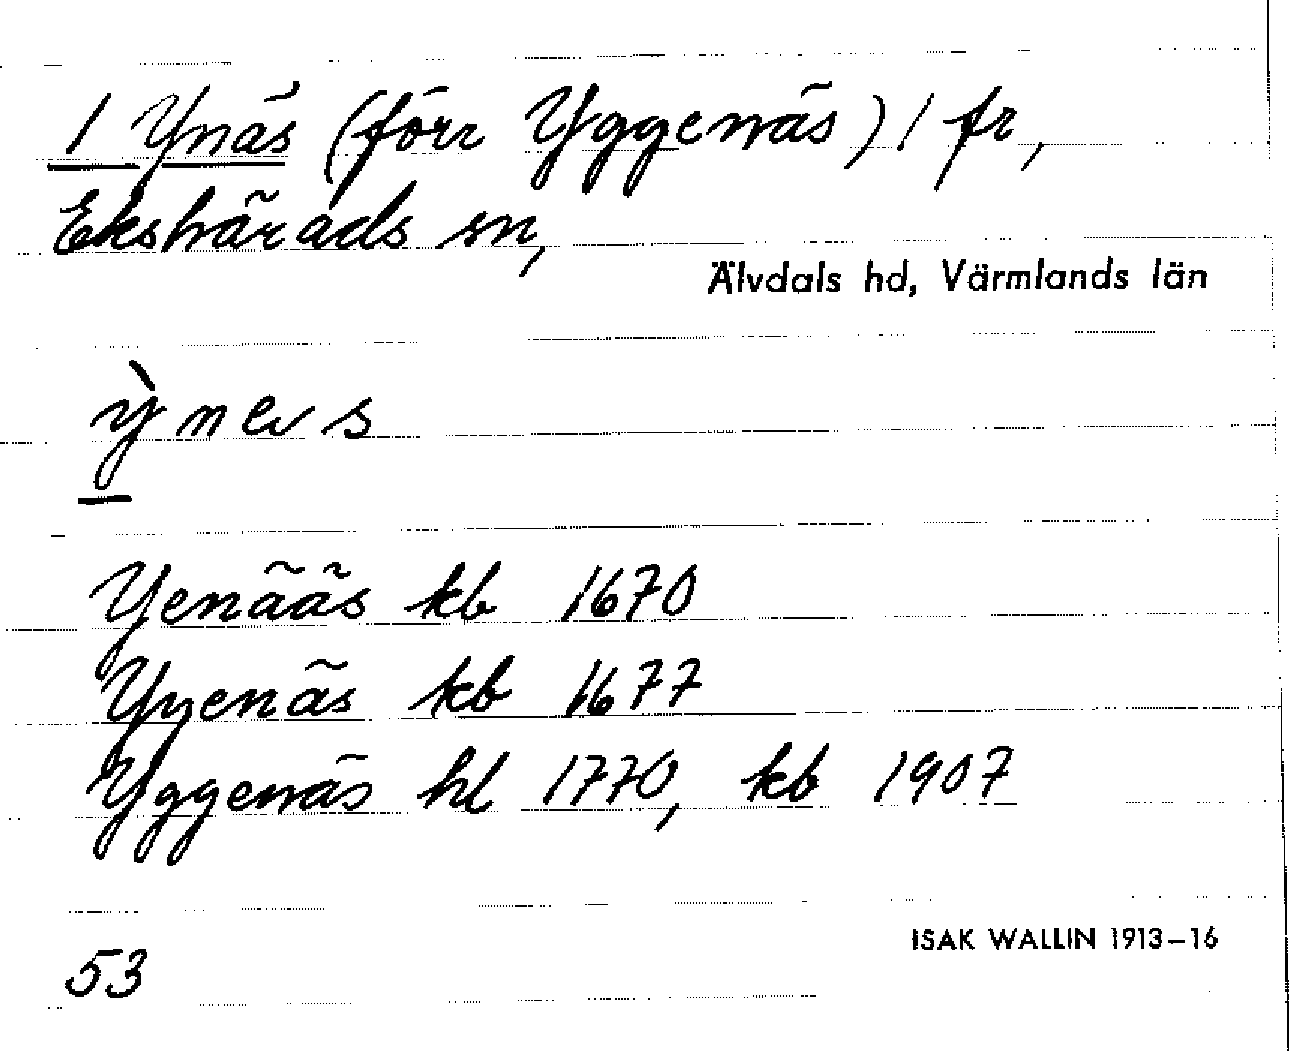 / Ynäs (förr Yggenäs) / fr,
Ekshärads sn,
Älvdals hd, Värmlands län
ỳnes
Yenääs kb 1670
Yyenäs kb 1677
Yggenäs hl 1770, kb 1907
ISAK WALLIN 1913-16
53